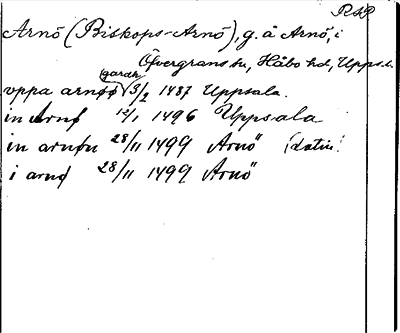 RAP
Arnö (Biskops-Arnö), g. å Arnö, i
Övergrans sn, Håbo hd, Upps. l.
gardh
vppa arnøø 3/2 1487 Uppsala.
in Arnø 12/1 1496 Uppsala
in arnøn 28/11 1499 Arnö (dativ!
i arnø 28/11 1499 Arnö